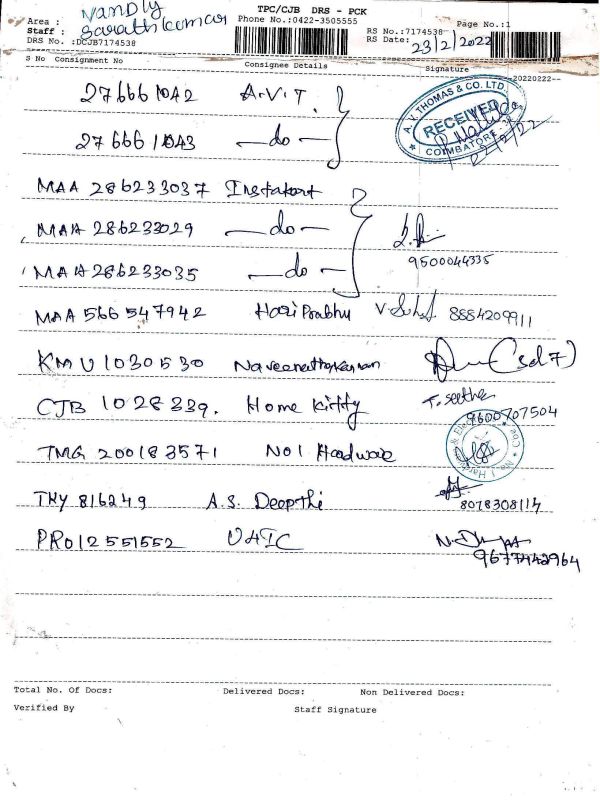 TPC/CJB DRS - PCK
Area : Nandly
Phone No.:0422-3505555
RS No.:7174538
Page No.:1
Staff : Sarathkumar
RS Date: 23/2/2022
DRS No. :DCJB7174538
S No Consignment No Consignee Details Signature
--20220222--
276661042 A.V.T.
A.V. THOMAS & CO. LTD.
RECEIVED
COIMBATORE
22/2/22
276661043 -do-
MAA 286233037 Instakart
MAA 286233029 -do-
9500044335
MAA 286233035 -do-
MAA 566547942 Hari Prabhu 8884209911
KMU1030530 Naveenathakannan
CJB 1028339. Home Kitty T. Seetha
9600707504
TMG 200183571 NO1 Hardware
TKY 816249 A.S. Deepthi
8078308114
PRO12551552 UAIC
9677442964
Total No. Of Docs: Delivered Docs: Non Delivered Docs:
Verified By Staff Signature